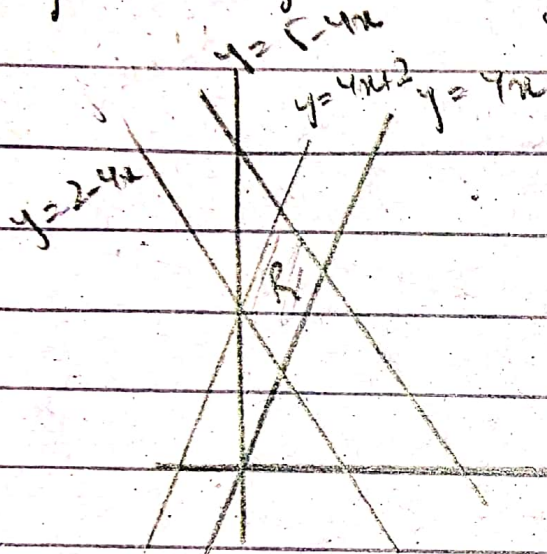 y = 5-4x
y=4x+2
y = 4x
y=2-4x
R